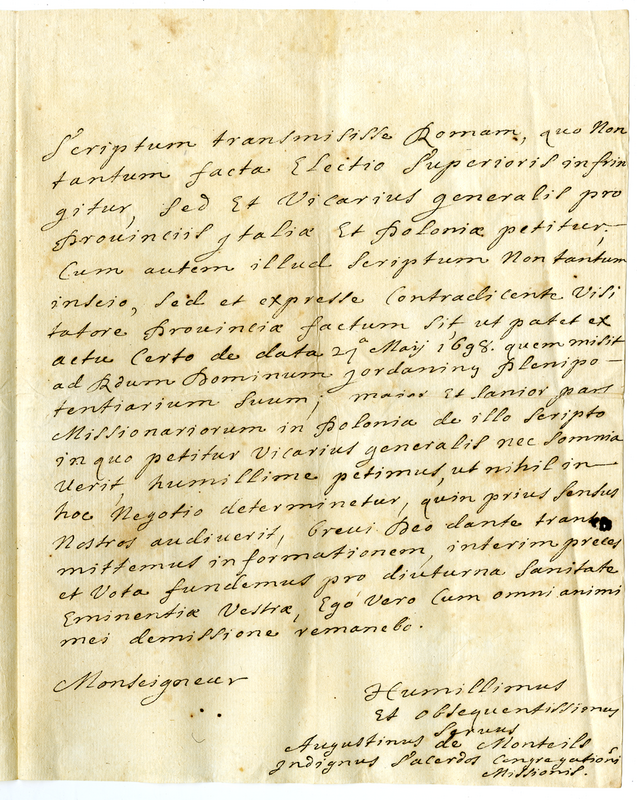 Scriptum transmisisse Romam, quo Non
tantum facta Electio Superioris infrin
gitur, sed Et Vicarius generalis pro
Prouinciis Italiæ Et Poloniæ petitur.
Cum autem illud scriptum Non tantum
inscio, sed et expresse Contradicente Visi
tatore Prouinciæ factum sit, ut patet ex
actu Certo de data 21ª Maij 1698. quem misit
ad Rdum Dominum Jordaniny Plenipo-
tentiarium suum; maior Et Sanior pars
Missionariorum in Polonia de illo scripto
in quo petitur Vicarius generalis nec somnia
verit, humillime petimus, ut nihil in
hoc Negotio determinetur, quin prius sensus
Nostros audiuerit, breui Deo dante trans
mittemus informationem, interim preces
et Vota fundemus pro diuturna Sanitate
Eminentiæ Vestræ, Ego Vero Cum omni animi
mei demissione remanebo.
Monseigneur
Humillimus
Et obsequentissimus
Seruus
Augustinus de Monteils
Indignus Sacerdos Congregationis
Missionis.